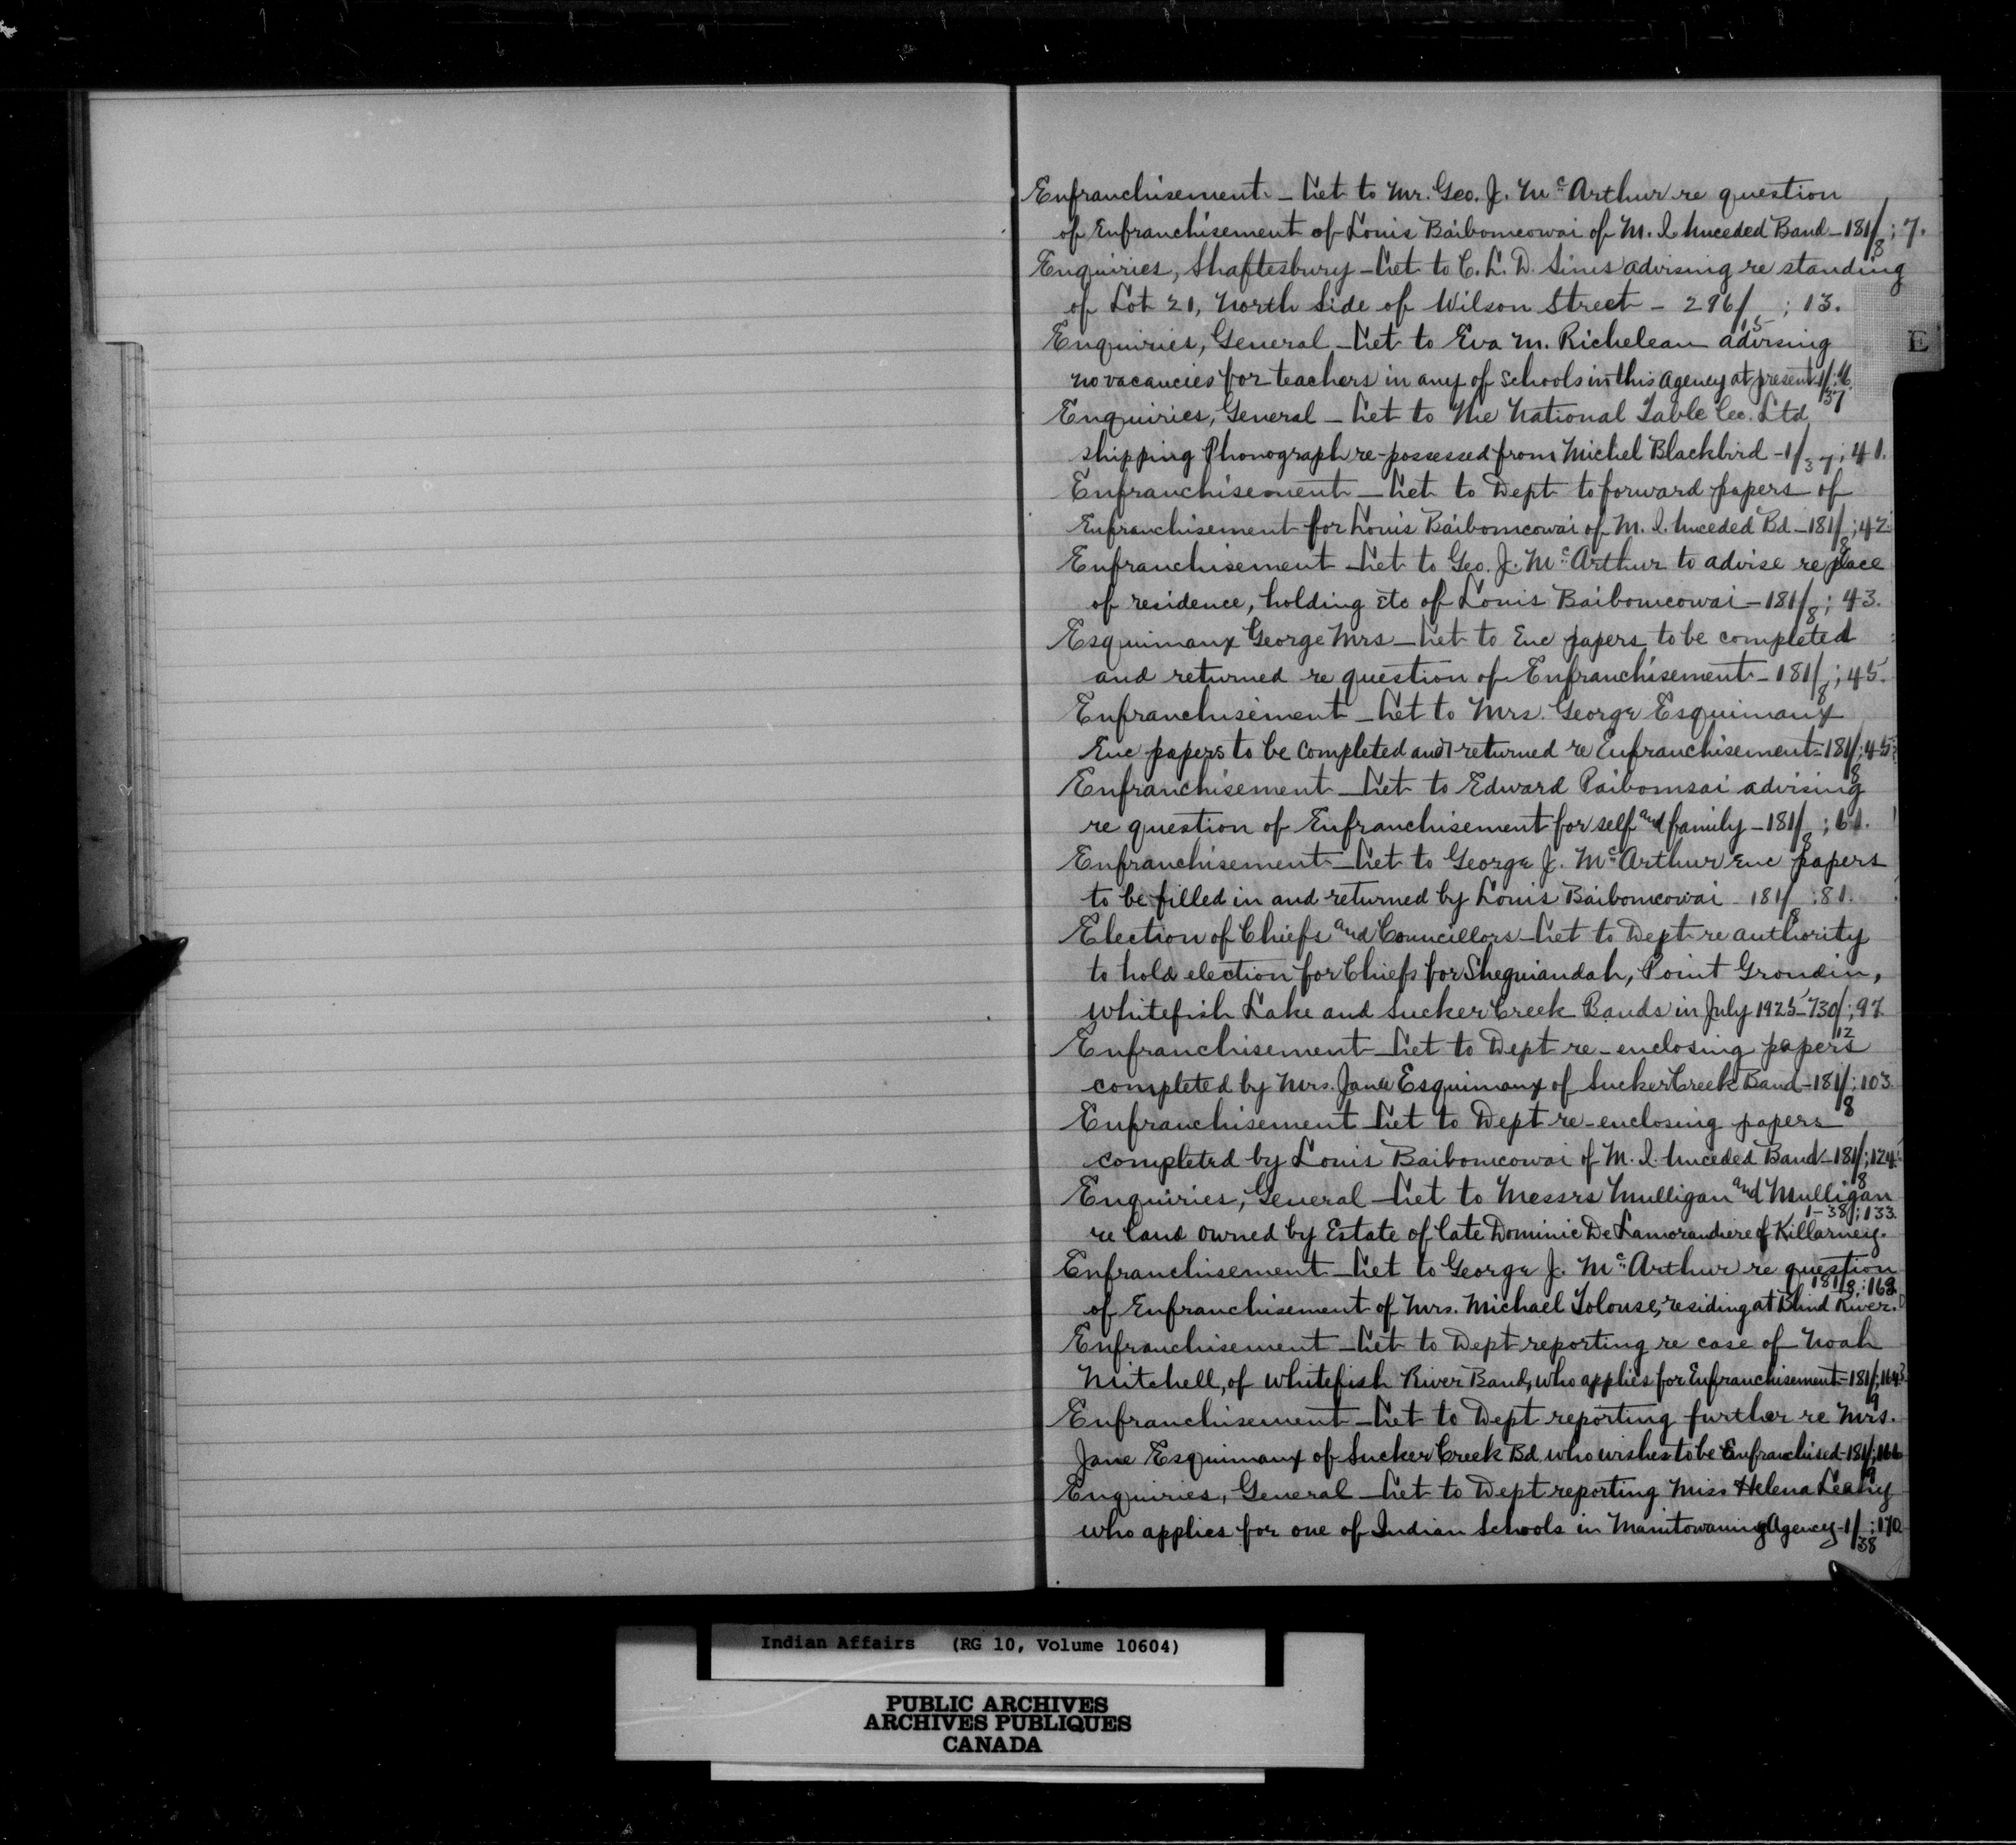 Enfranchisement – Let to Mr. Geo. J. McArthur re question
of Enfranchisement of Louis Baibomcowai of M. I. Unceded Band – 181/8; 7.
Enquiries, Shaftesbury – Let to C. L. D. Sims advising re standing
of Lot 21, North Side of Wilson Street – 296/5; 13.
E
Enquiries, General – Let to Eva M. Richeleau advising
no vacancies for teachers in any of schools in this Agency at present 1/37;
Enquiries, General – Let to The National Table Co. Ltd
shipping Phonograph re-possessed from Michel Blackbird – 1/37; 41.
Enfranchisement – Let to Dept to forward papers of
Enfranchisement for Louis Baibomcowai of M. I. Unceded Bd – 181/8; 42
Enfranchisement – Let to Geo. J. McArthur to advise re place
of residence, holding etc of Louis Baibomcowai – 181/8; 43.
Esquimaux George Mrs – Let to Enc papers to be completed
and returned re question of Enfranchisement – 181/8; 45.
Enfranchisement – Let to Mrs. George Esquimaux
Enc papers to be completed and returned re Enfranchisement – 181/8; 45
Enfranchisement – Let to Edward Paibomsai advising
re question of Enfranchisement for self and family – 181/8; 61.
Enfranchisement – Let to George J. McArthur enc papers
to be filled in and returned by Louis Baibomcowai – 181/8; 81.
Election of Chiefs and Councillors – Let to Dept re authority
to hold election for Chiefs for Sheguiandah, Point Grondin,
Whitefish Lake and Sucker Creek Bands in July 1925 – 730/12; 97.
Enfranchisement – Let to Dept re-enclosing papers
completed by Mrs. Jane Esquimaux of Sucker Creek Band – 181/8; 103.
Enfranchisement – Let to Dept re-enclosing papers
completed by Louis Baibomcowai of M. I. Unceded Band – 181/8; 124.
Enquiries, General – Let to Messrs Mulligan and Mulligan
1-38; 133.
re land owned by Estate of late Dominic De Lamorandiere of Killarney.
Enfranchisement – Let to George J. McArthur re question
181/8; 162
of Enfranchisement of Mrs. Michael Tolouse, residing at Blind River.
Enfranchisement – Let to Dept reporting re case of Noah
Mitchell, of Whitefish River Band, who applies for Enfranchisement – 181/9;
Enfranchisement – Let to Dept reporting further re Mrs.
Jane Esquimaux of Sucker Creek Bd who wishes to be Enfranchised – 181/9; 166
Enquiries, General – Let to Dept reporting Miss Helena Leahy
who applies for one of Indian Schools in Manitowaning Agency – 1/38; 170
Indian Affairs (RG 10, Volume 10604)
PUBLIC ARCHIVES
ARCHIVES PUBLIQUES
CANADA